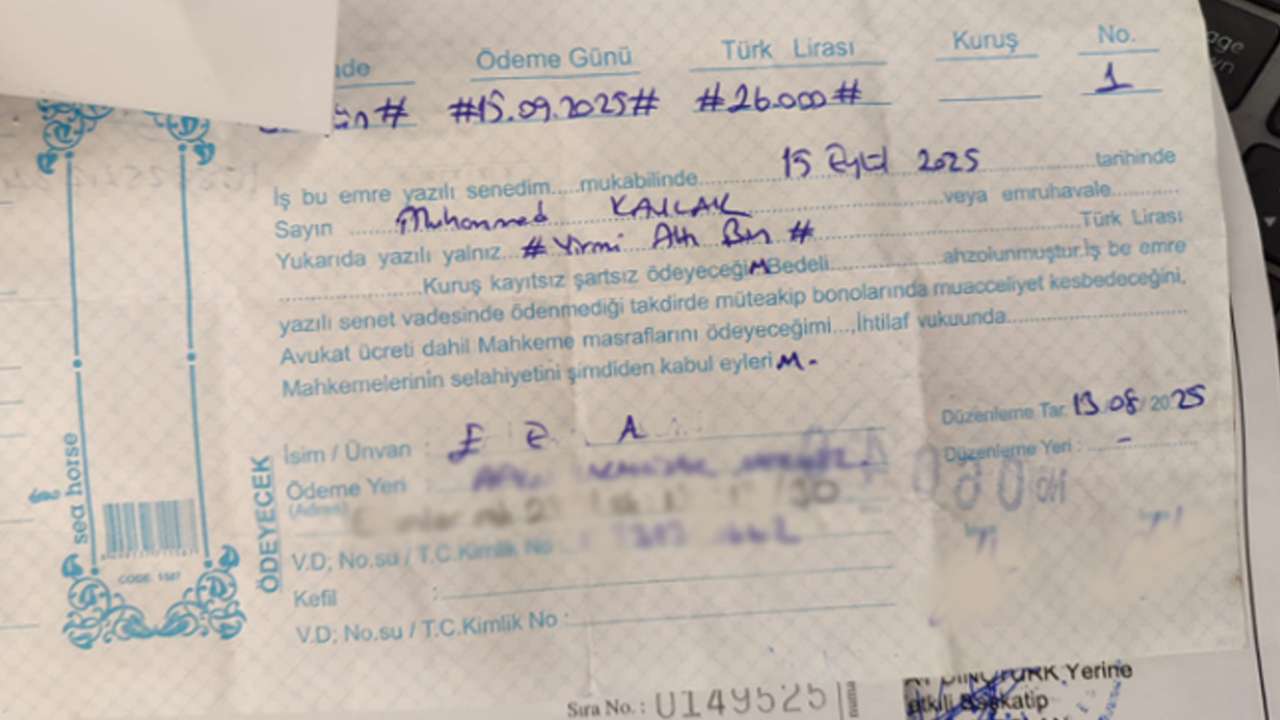 Ödeme Günü Türk Lirası Kuruş No.
#15.09.2025# #26.000# 1
İş bu emre yazılı senedim.....mukabilinde 15 Eylül 2025 tarihinde
Sayın Muhammed veya emruhavale
Yukarıda yazılı yalnız. # Yirmi Altı Bin # Türk Lirası
Kuruş kayıtsız şartsız ödeyeceğiM Bedeli ahzolunmuştur.İş be emre
yazılı senet vadesinde ödenmediği takdirde müteakip bonolarında muacceliyet kesbedeceğini,
Avukat ücreti dahil Mahkeme masraflarını ödeyeceğimi...,İhtilaf vukuunda
Mahkemelerinin selahiyetini şimdiden kabul eyleriM.
Düzenleme Tar. 13/08/2025
İsim / Ünvan : E A
Düzenleme Yeri : -
Ödeme Yeri :
(Adresi)
V.D; No.su / T.C.Kimlik No
Kefil :
V.D; No.su / T.C.Kimlik No :
ÖDEYECEK
sea horse
CODE: 1587
Yerine
Sıra No. : U149525